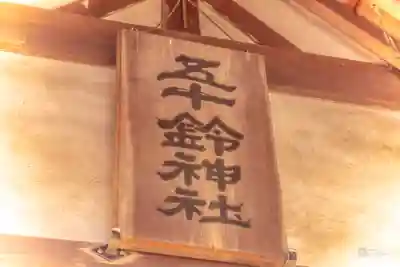 五十鈴神社